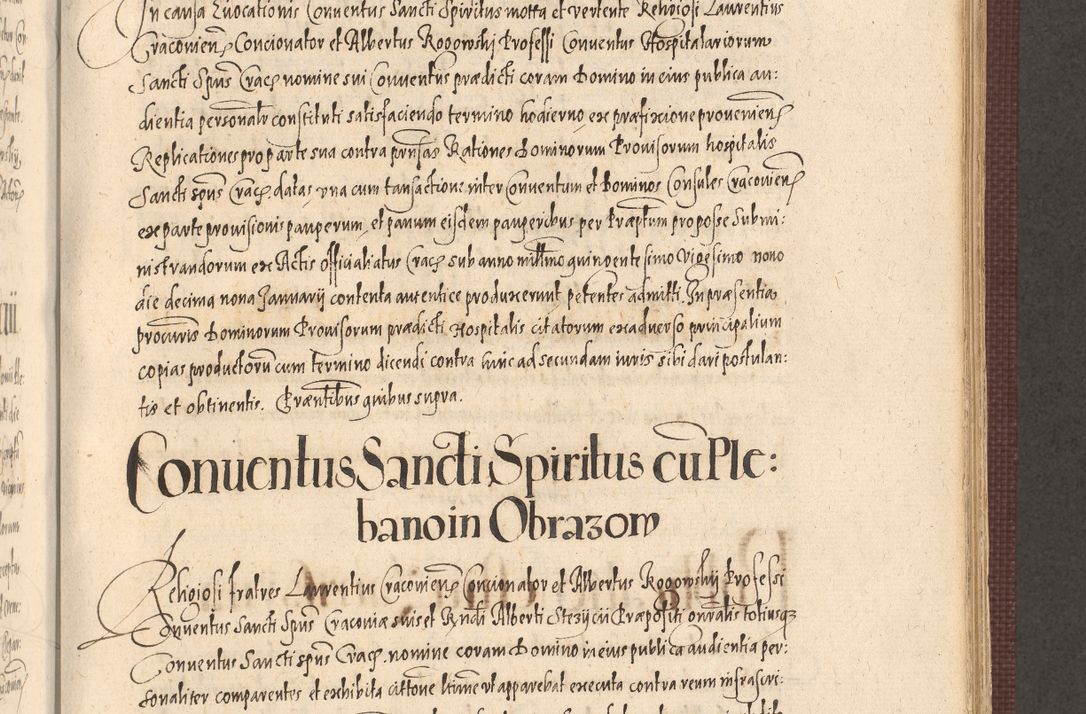 In causa Euocationis Conuentus Sancti Spiritus mota et vertente Religiosi Laurentius
Cracouien Concionator et Albertus Rogowski Professi Conuentus Hospitalariorum
Sancti Spūs Crac nomine sui Conuentus prædicti coram Domino in eius publica au:
dientia personalr constituti satisfaciendo termino hodierno ex præfixione prouenien
Replicationes pro parte sua contra prnsas Rationes Dominorum Prouisorum hospitalis
Sancti spūs Crac datas vna cum tansactione inter Conuentum et Dominos Consules Cracouien
ex parte prouisionis pauperum et panum eisdem pauperibus per Præptum propose submi:
nistrandorum ex Actis Officialiatus Crac sub anno millmo quingentesimo Vigesimo nono
die decima nona Januarij contenta autentice produxerunt petentes admitti. In præsentia
procuris Dominorum Prouisorum prædicti Hospitalis citatorum ex aduerso principalium
copias productorū cum termino dicendi contra hinc ad secundam iuris sibi dari postulan:
tis et obtinentis. Præntibus quibus supra.
Conuentus Sancti Spiritus cū Ple:
bano in Obrazow
Religiosi fratres Laurentius Cracouien Concionator et Albertus Rogowskij Professi
Conuentus Sancti Spūs Cracouiæ suis et Rndi Alberti Præpositi totiusq
Conuentus Sancti spūs Crac. nomine coram Domino in eius publica audientia per:
sonaliter comparentes et exhibita cittone vt apparebat executa contra reum infrascri: